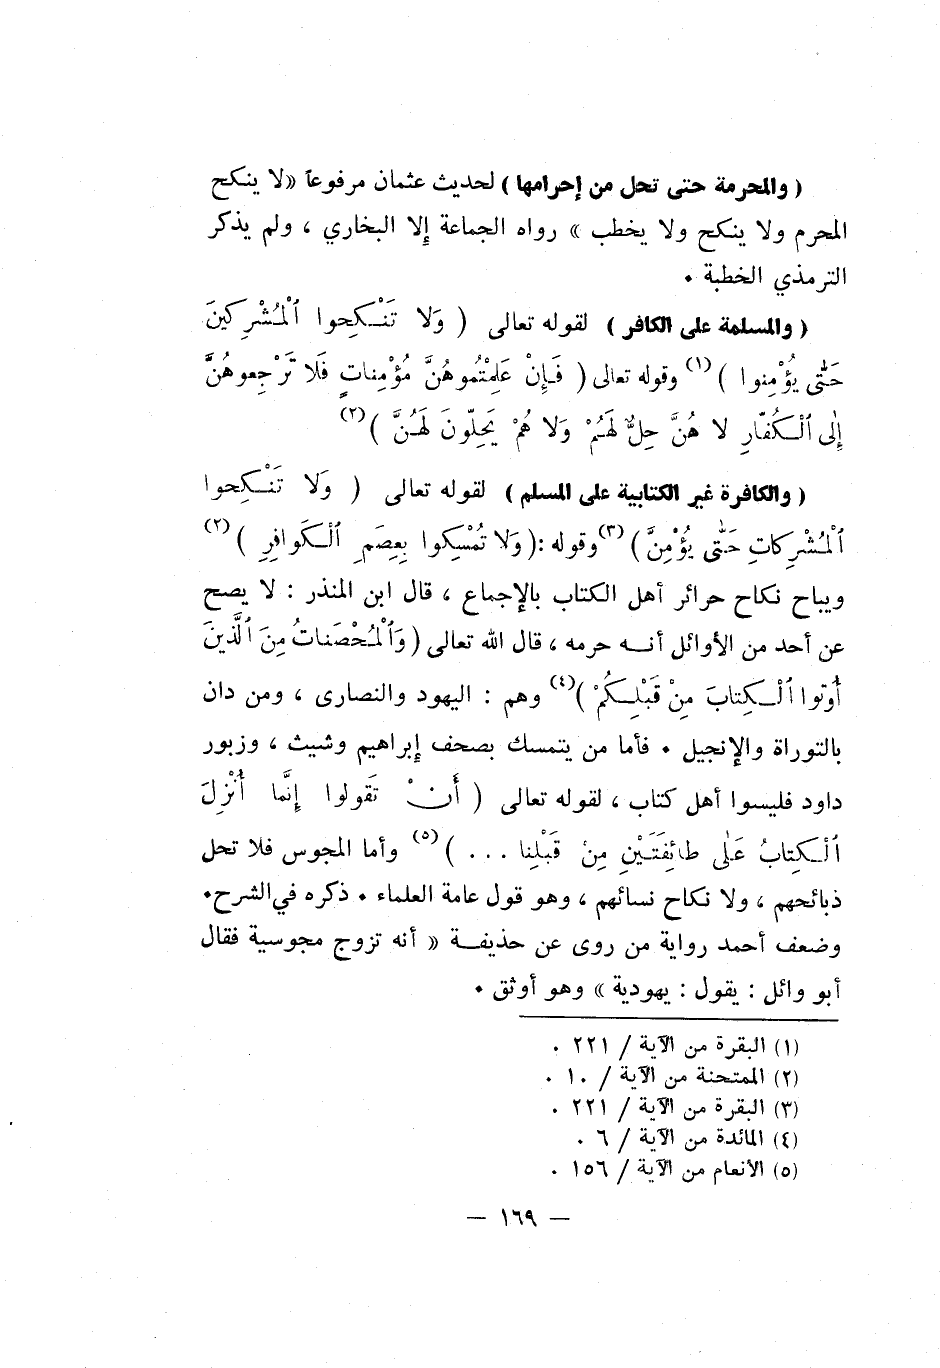 ( والمحرمة حتى تحل من إحرامها ) لحديث عثمان مرفوعاً «لا ينكح
المحرم ولا ينكح ولا يخطب » رواه الجماعة إلا البخاري ، ولم يذكر
الترمذي الخطبة .
( والمسلمة على الكافر ) لقوله تعالى ( وَلا تَنْكِحوا ٱلْمُشْرِكينَ
حَتّٰى يُؤْمِنوا )(١) وقوله تعالى ( فَإِنْ عَلِمْتُموهُنَّ مُؤْمِناتٍ فَلا تَرْجِعوهُنَّ
إِلى ٱلْكُفّارِ لا هُنَّ حِلٌّ لَهُمْ وَلا هُمْ يَحِلّونَ لَهُنَّ )(٢)
( والكافرة غير الكتابية على المسلم ) لقوله تعالى ( وَلا تَنْكِحوا
ٱلْمُشْرِكاتِ حَتّٰى يُؤْمِنَّ )(٣) وقوله :( وَلا تُمْسِكوا بِعِصَمِ ٱلْكَوافِرِ )(٢)
ويباح نكاح حرائر أهل الكتاب بالإجماع ، قال ابن المنذر : لا يصح
عن أحد من الأوائل أنه حرمه ، قال الله تعالى ( وَٱلْمُحْصَناتُ مِنَ ٱلَّذينَ
أُوتوا ٱلْكِتابَ مِنْ قَبْلِكُمْ )(٤) وهم : اليهود والنصارى ، ومن دان
بالتوراة والإنجيل . فأما من يتمسك بصحف إبراهيم وشيث ، وزبور
داود فليسوا أهل كتاب ، لقوله تعالى ( أَنْ تَقولوا إِنَّما أُنْزِلَ
ٱلْكِتابُ عَلى طائِفَتَيْنِ مِنْ قَبْلِنا ... )(٥) وأما المجوس فلا تحل
ذبائحهم ، ولا نكاح نسائهم ، وهو قول عامة العلماء . ذكره في الشرح .
وضعف أحمد رواية من روى عن حذيفة « أنه تزوج مجوسية فقال
أبو وائل : يقول : يهودية » وهو أوثق .
(١) البقرة من الآية / ٢٢١ .
(٢) الممتحنة من الآية / ١٠ .
(٣) البقرة من الآية / ٢٢١ .
(٤) المائدة من الآية / ٦ .
(٥) الأنعام من الآية / ١٥٦ .
— ١٦٩ —